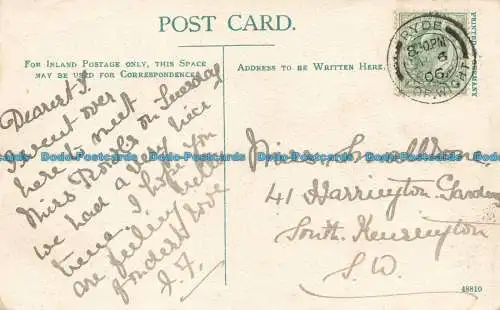 POST CARD.
FOR INLAND POSTAGE ONLY, THIS SPACE
MAY BE USED FOR CORRESPONDENCE.
ADDRESS TO BE WRITTEN HERE.
RYDE
8.30PM
6
06
OF WIGHT
Dearest S.
I went over
here to meet
Miss on Tuesday
we had a very nice
time. I hope you
are feeling
fondest love
J. F.
Miss
41 Harrington Gardens
South Kensington
S.W.
48810
Dodo-Postcards Dodo-Postcards Dodo-Postcards Dodo-Postcards